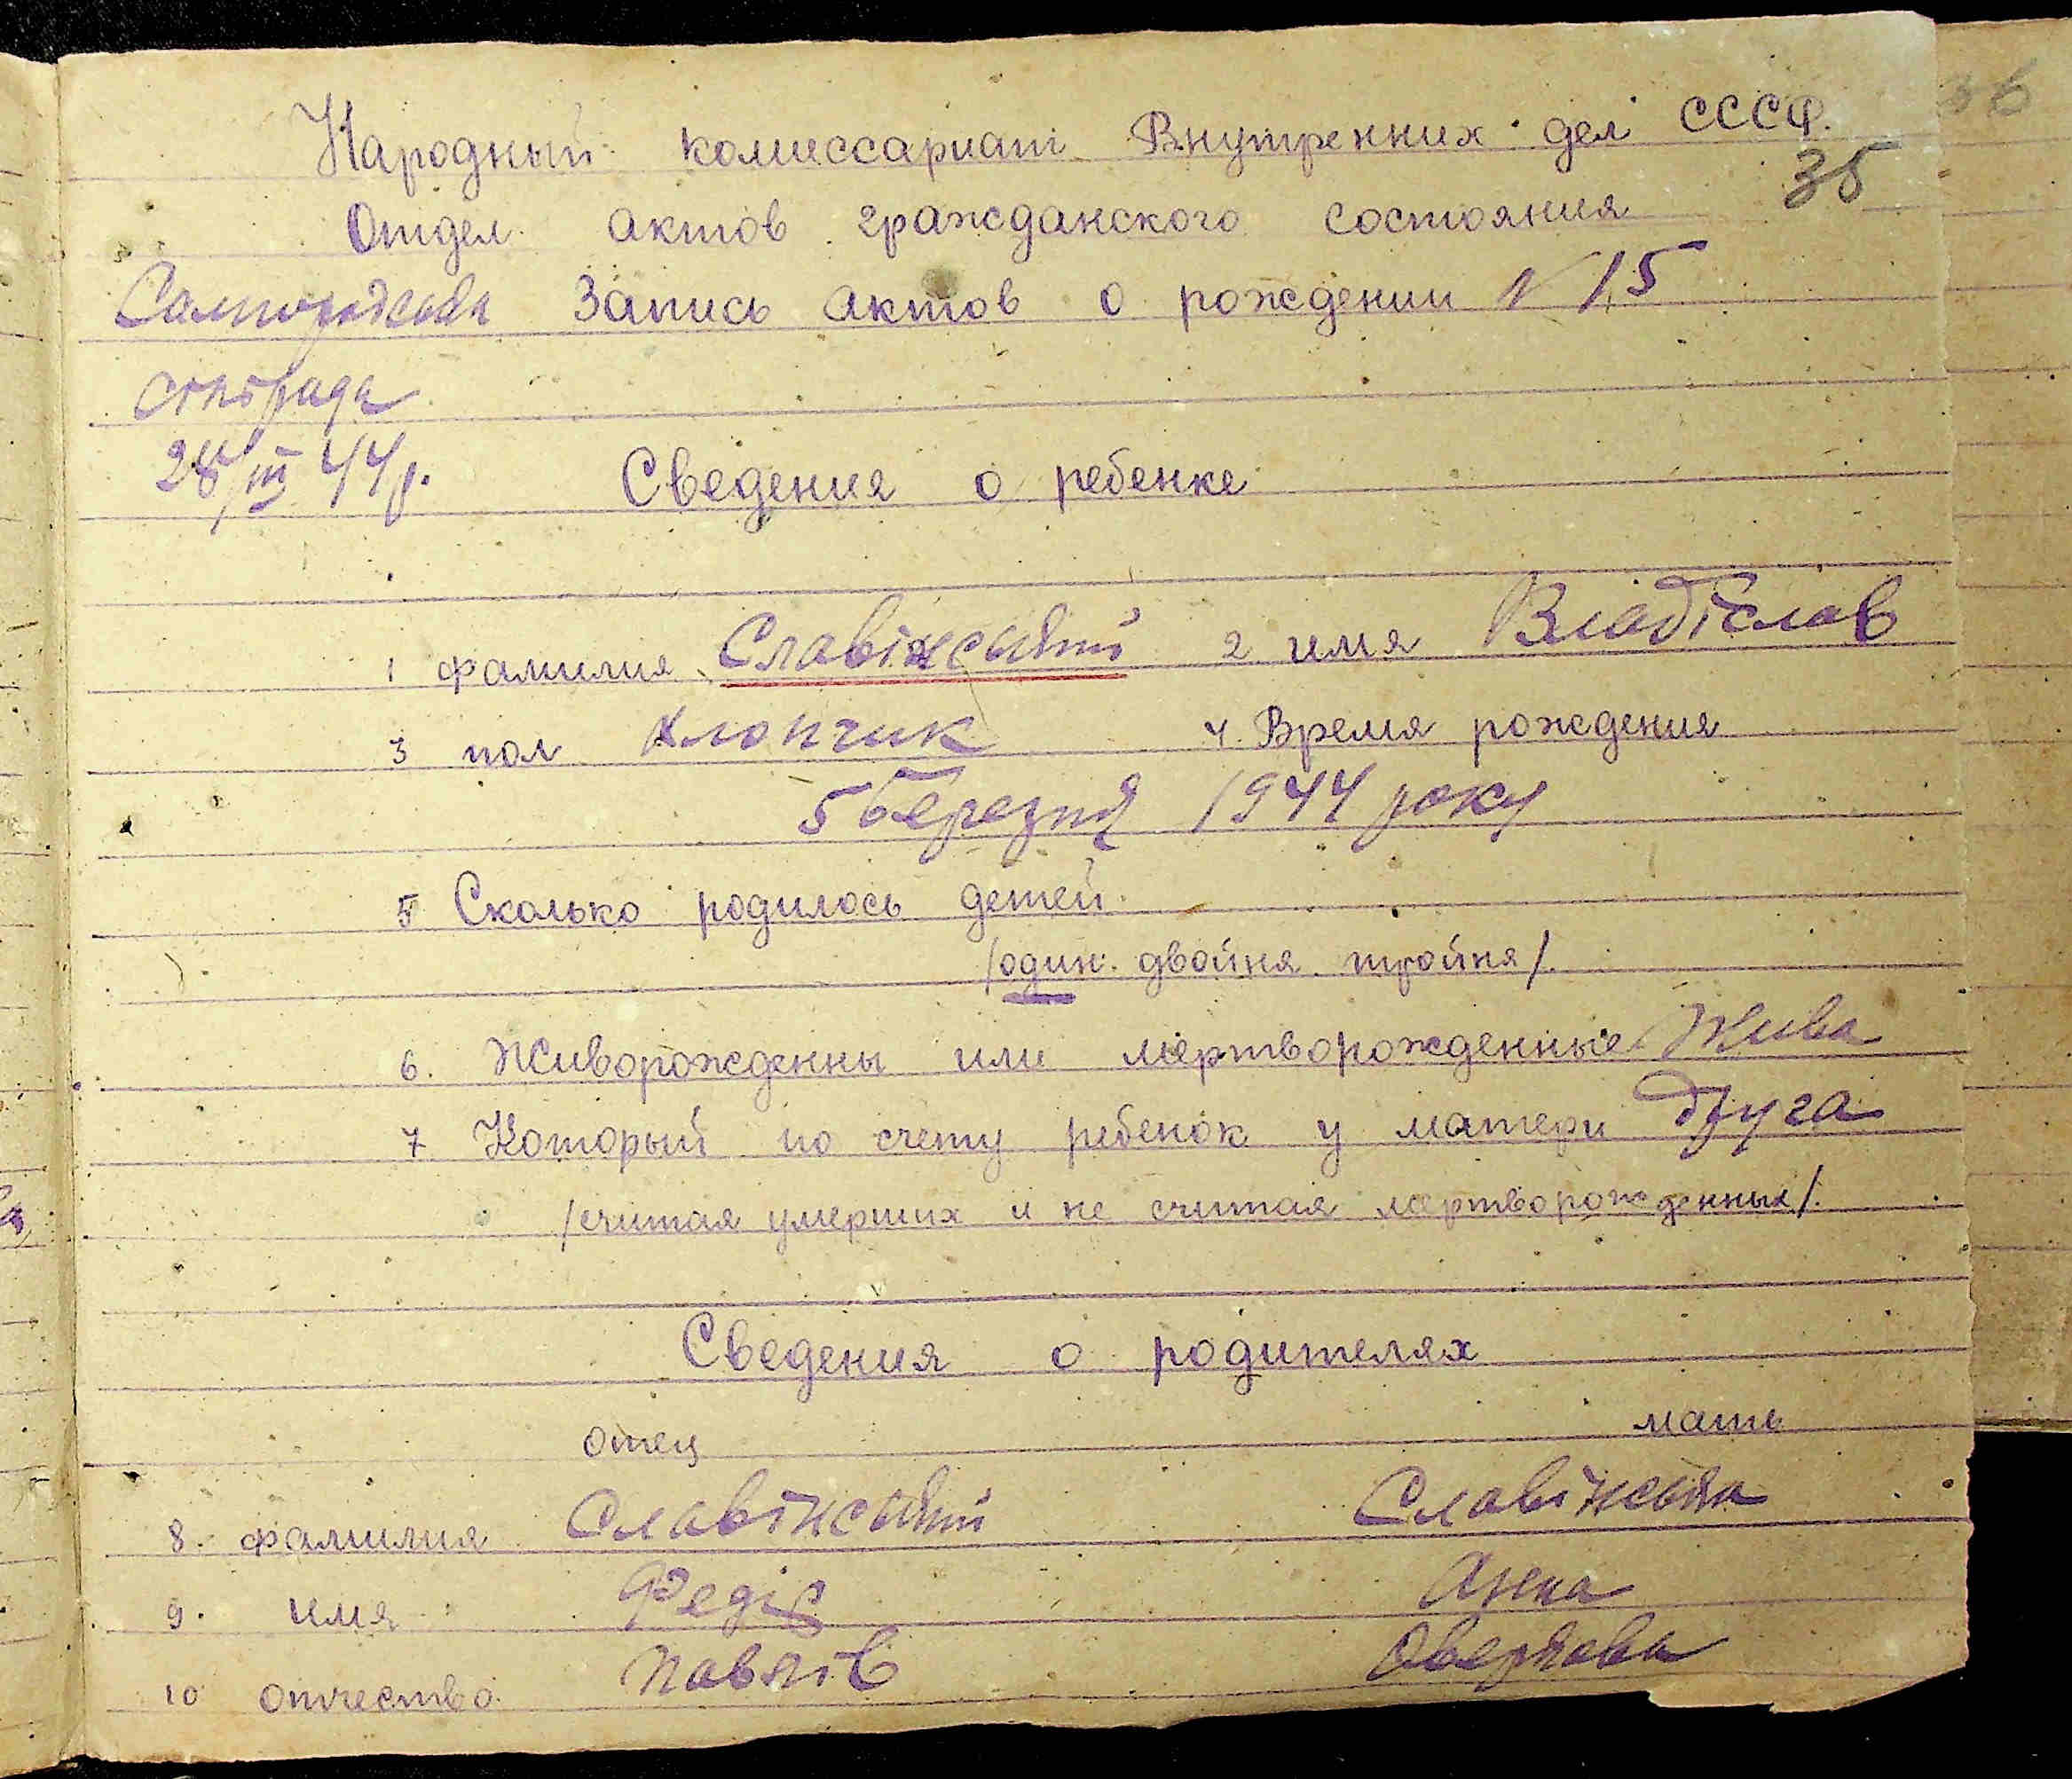 36
Народный комиссариат Внутренних дел СССР.
35
Отдел актов гражданского состояния
Самгородська Запись актов о рождении N 15
сільрада
28/III 44 р.
Сведения о ребенке
1 фамилия Славінський 2 имя Владіслав
3 пол хлопчик 4. Время рождения
5 березня 1944 року
5 Сколько родилось детей
/один. двойня тройня/.
6. Живорожденны или мертворожденные Жива
7 Который по счету ребенок у матери друга
/считая умерших и не считая мертворожденных/.
Сведения о родителях
отец мать
8. фамилия Славінський Славінська
9. имя Федір Анна
10 отчество Павлів